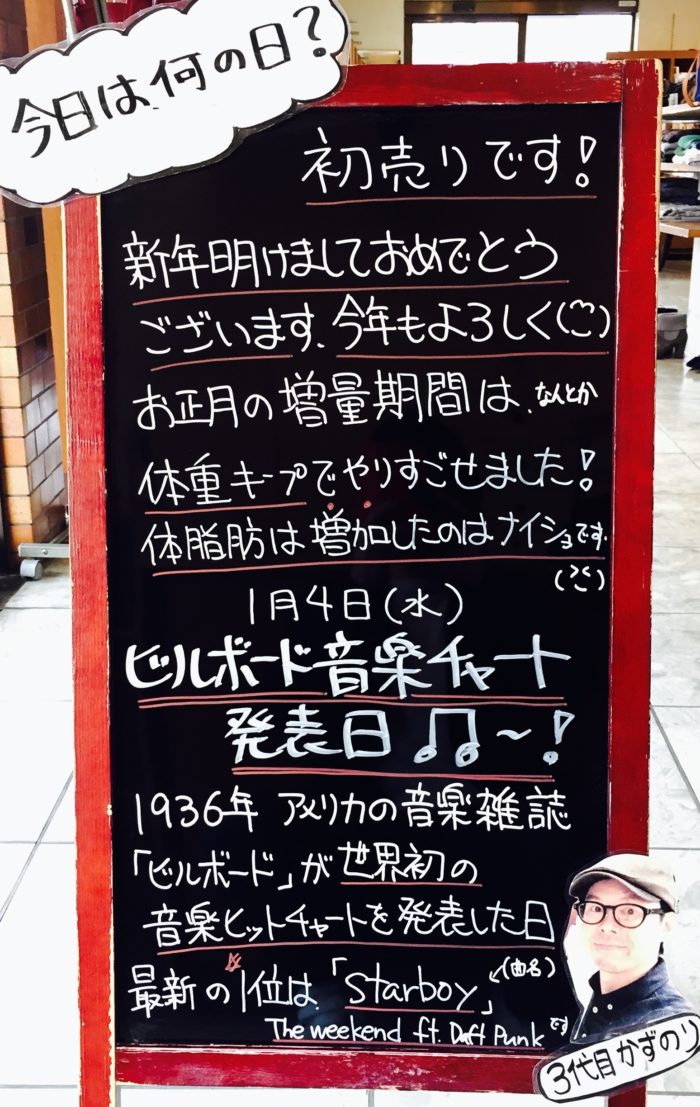 今日は何の日?
初売りです!
新年明けましておめでとう
ございます、今年もよろしく
お正月の増量期間は、なんとか
体重キープでやりすごせました!
体脂肪は増加したのはナイショです。
1月4日(水)
ビルボード音楽チャート
発表日♫~!
1936年 アメリカの音楽雑誌
「ビルボード」が世界初の
音楽ヒットチャートを発表した日
最新の1位は「starboy」(曲名)
The weekend ft. Daft Punk です
3代目かずのり